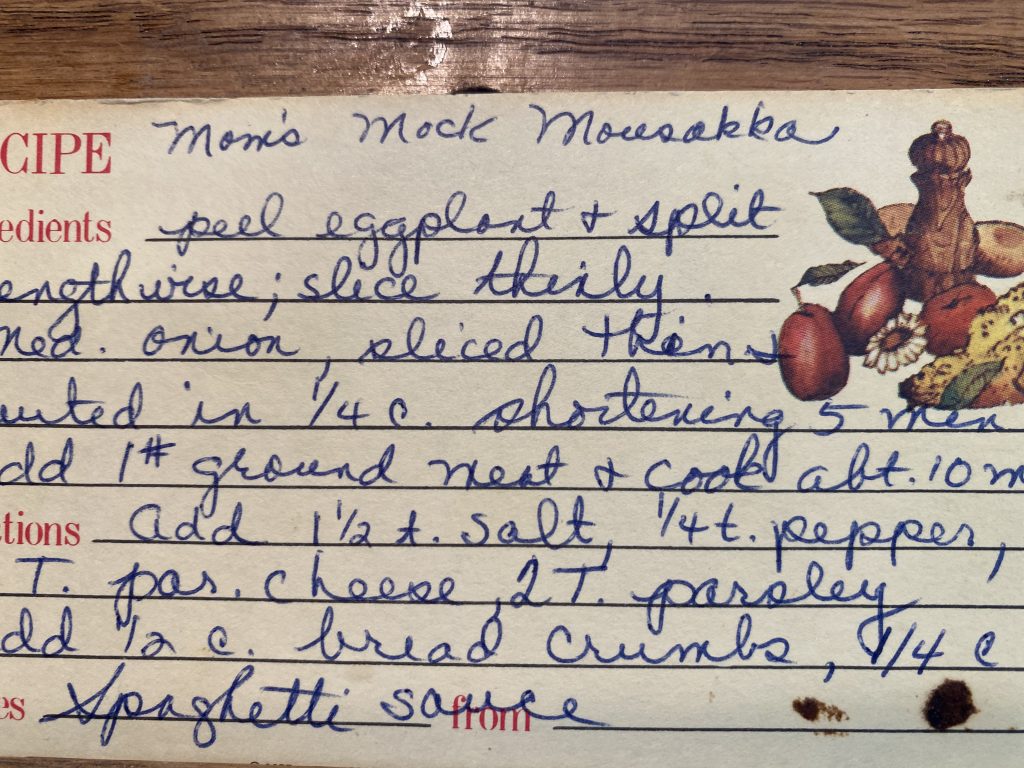 CIPE Mom's Mock Mousakka
edients peel eggplant & split
engthwise; slice thinly.
med. onion, sliced thin &
auted in 1/4 c. shortening 5 min
dd 1# ground meat & cook abt. 10 m
tions add 1 1/2 t. salt, 1/4 t. pepper,
T. par. cheese, 2 T. parsley
dd 1/2 c. bread crumbs, 1/4 c
es Spaghetti sauce from